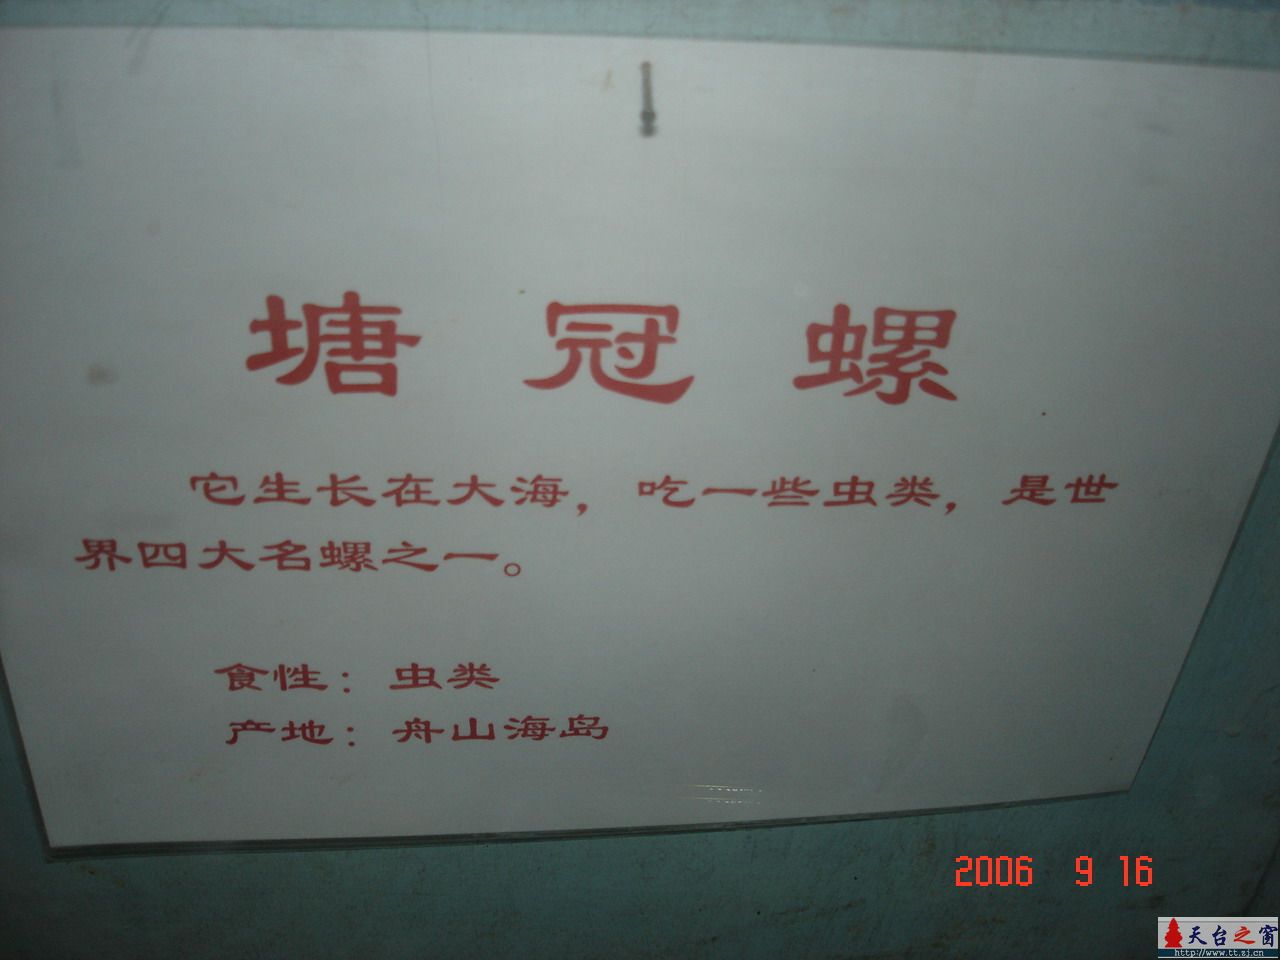 塘冠螺
它生长在大海，吃一些虫类，是世
界四大名螺之一。
食性：虫类
产地：舟山海岛
2006 9 16
天台之窗
http://www.tt.zj.cn